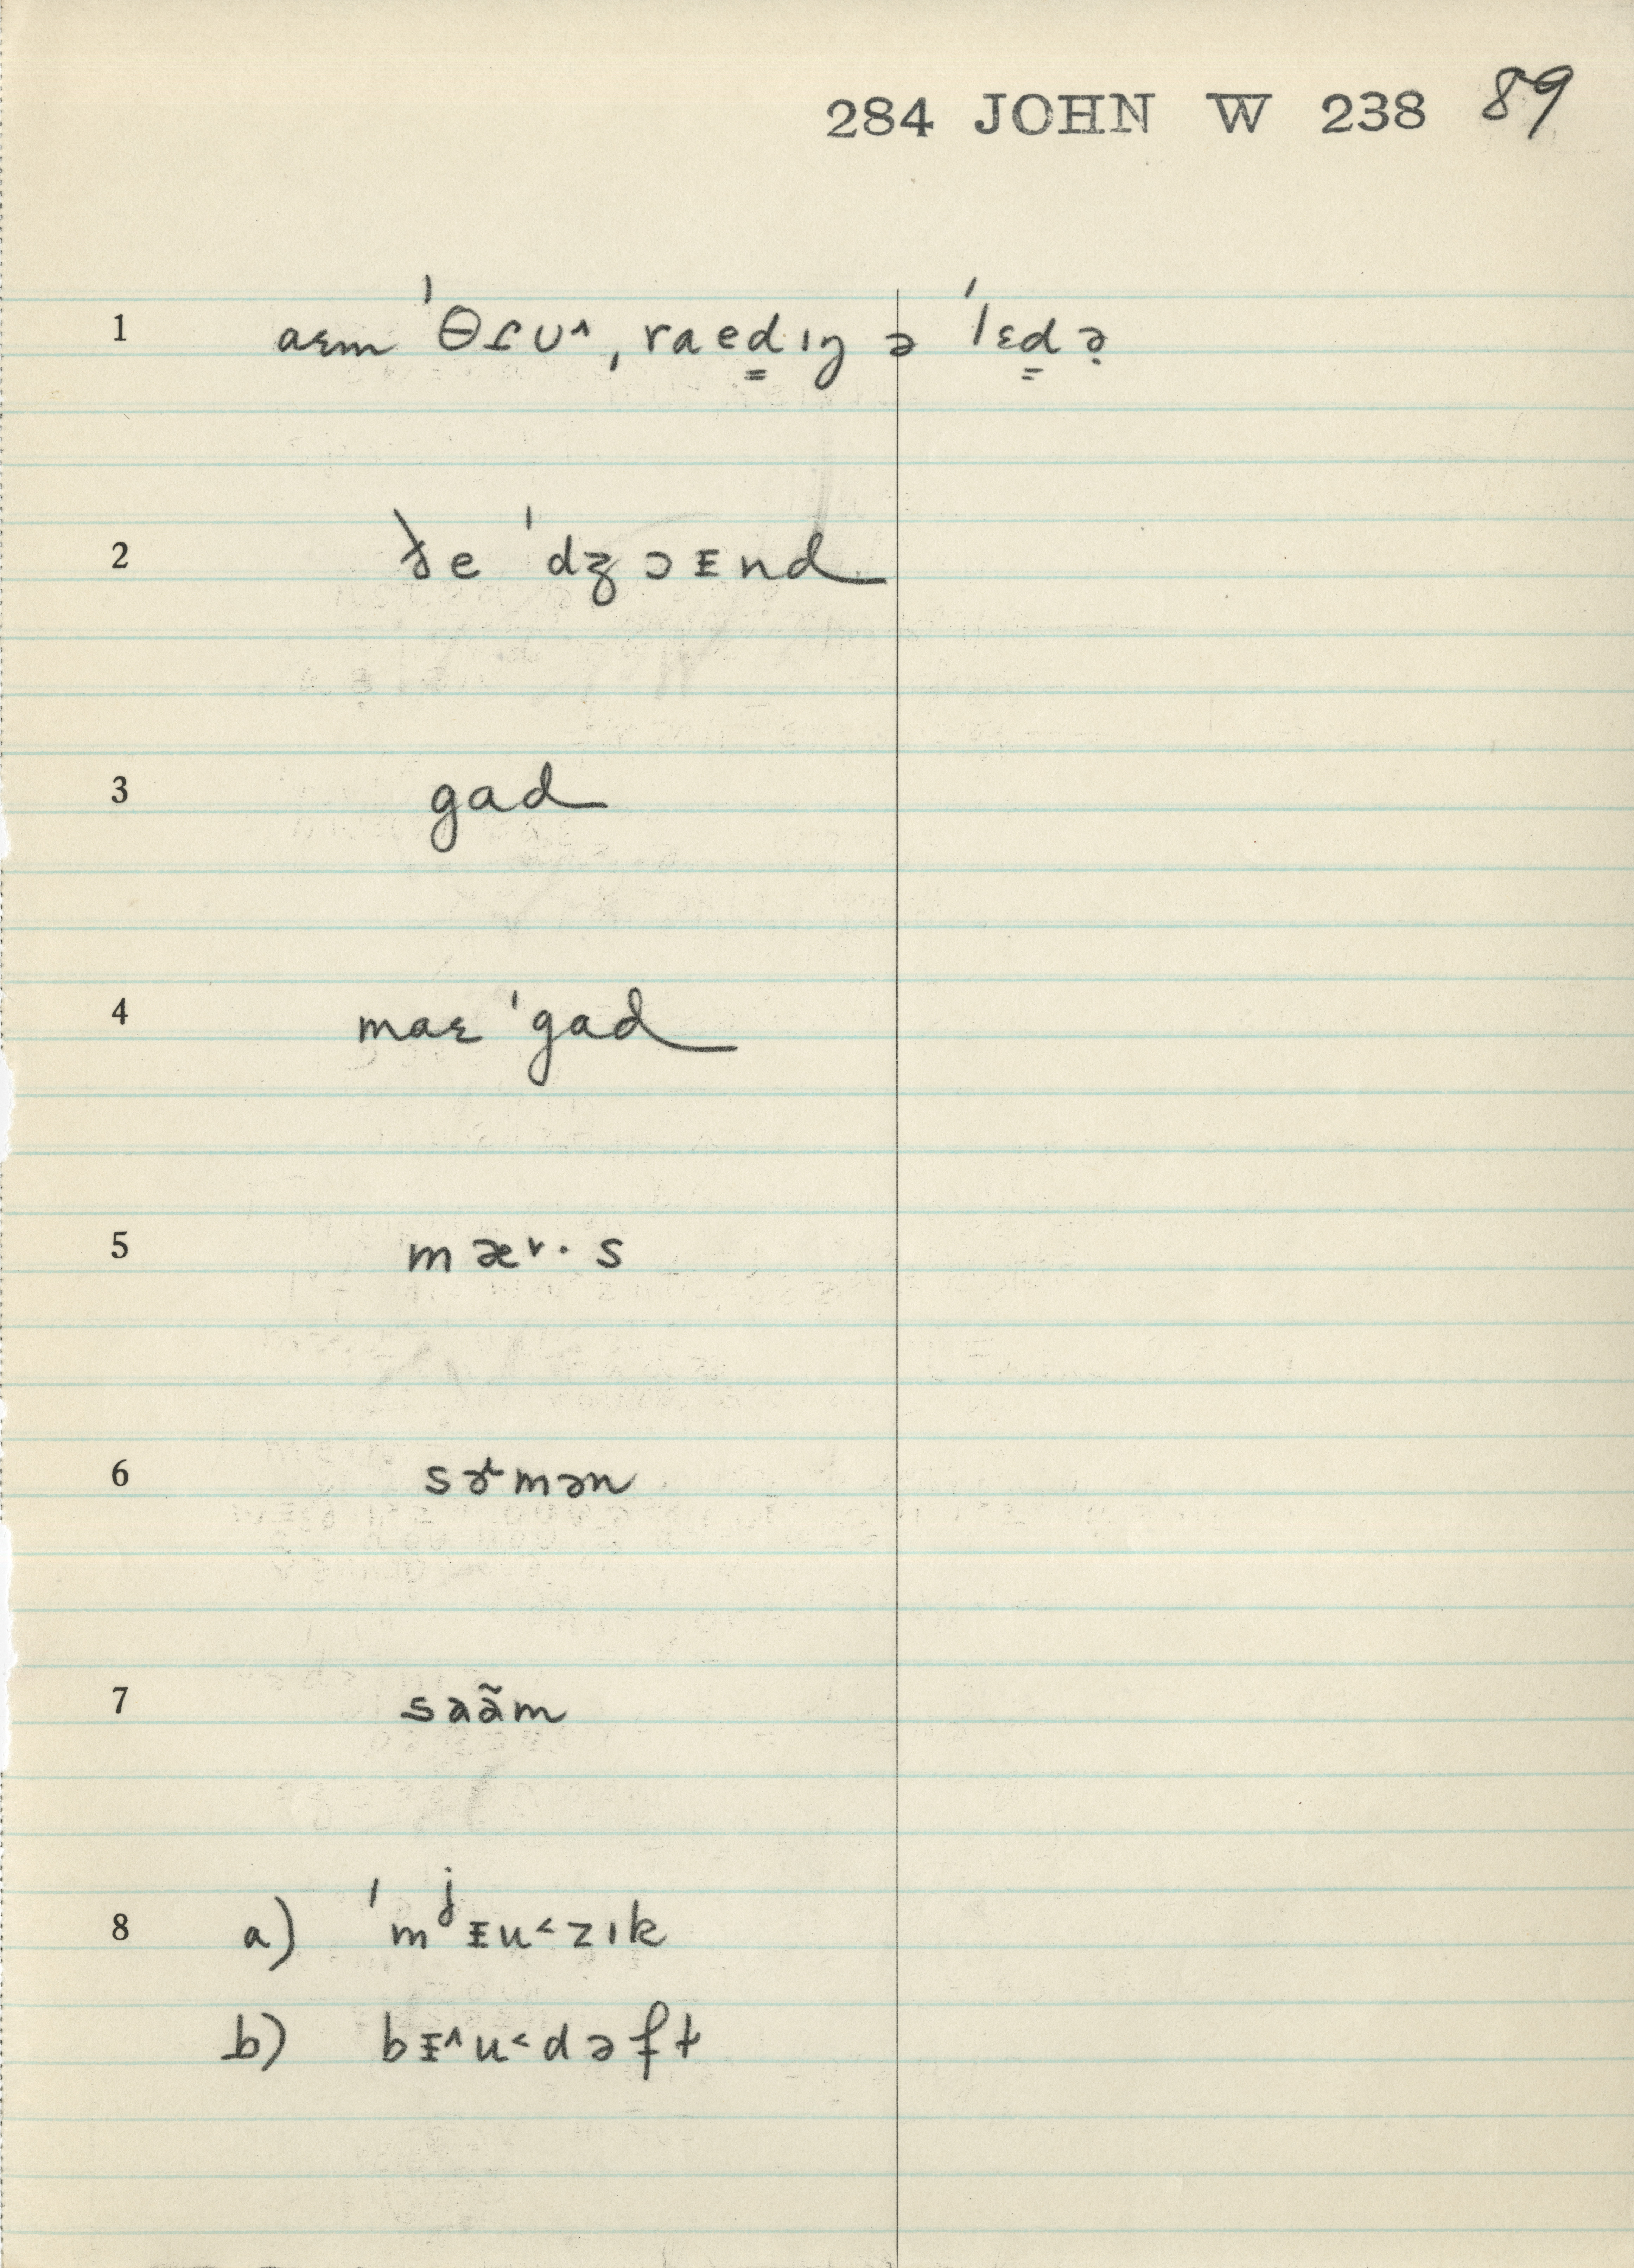 284 JOHN W 238 89
1 aɛm ˈθɾʊ˄, raed̳ıŋ ə ˈlɛd̳ə̣
2 ðe ˈdʒɔᵻnd
3 gad
4 maɛ ˈgad
5 mæ˅· s
6 sɚmən
7 saãm
8 a) ˈmʲᵻu˂zık
b) bᵻ˄u˂dəft